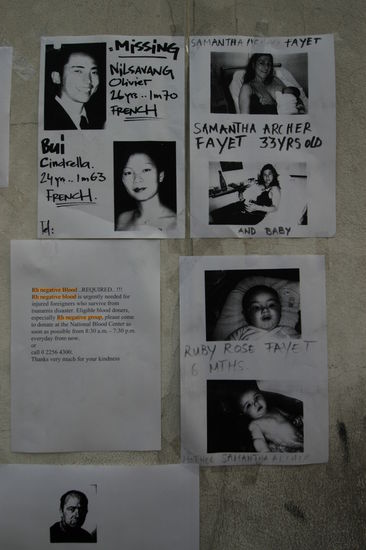 : MISSING
NILSAVANG
Olivier
26 yrs .. 1m70
FRENCH
Bui
Cindrella.
24 yrs .. 1m63
FRENCH.
Id:
SAMANTHA ARCHER FAYET
SAMANTHA ARCHER
FAYET 33YRS old
AND BABY
Rh negative Blood ..REQUIRED.. !!!
Rh negative blood is urgently needed for
injured foreigners who survive from
tsunamis disaster. Eligible blood donors,
especially Rh negative group, please come
to donate at the National Blood Center as
soon as possible from 8:30 a.m. – 7:30 p.m.
everyday from now.
or
call 0 2256 4300;
Thanks very much for your kindness
RUBY ROSE FAYET
6 MTHS.
MOTHER SAMANTHA ARCHER